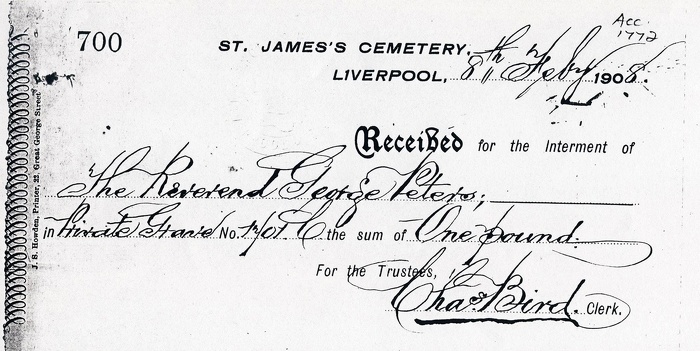 Acc.
1772
700
ST. JAMES'S CEMETERY,
LIVERPOOL, 8th Feby 1908.
Received for the Interment of
The Reverend George Peters;
in Private Grave No. C the sum of One pound.
For the Trustees,
Chas Bird. Clerk.
J. S. Howden, Printer, 23, Great George Street